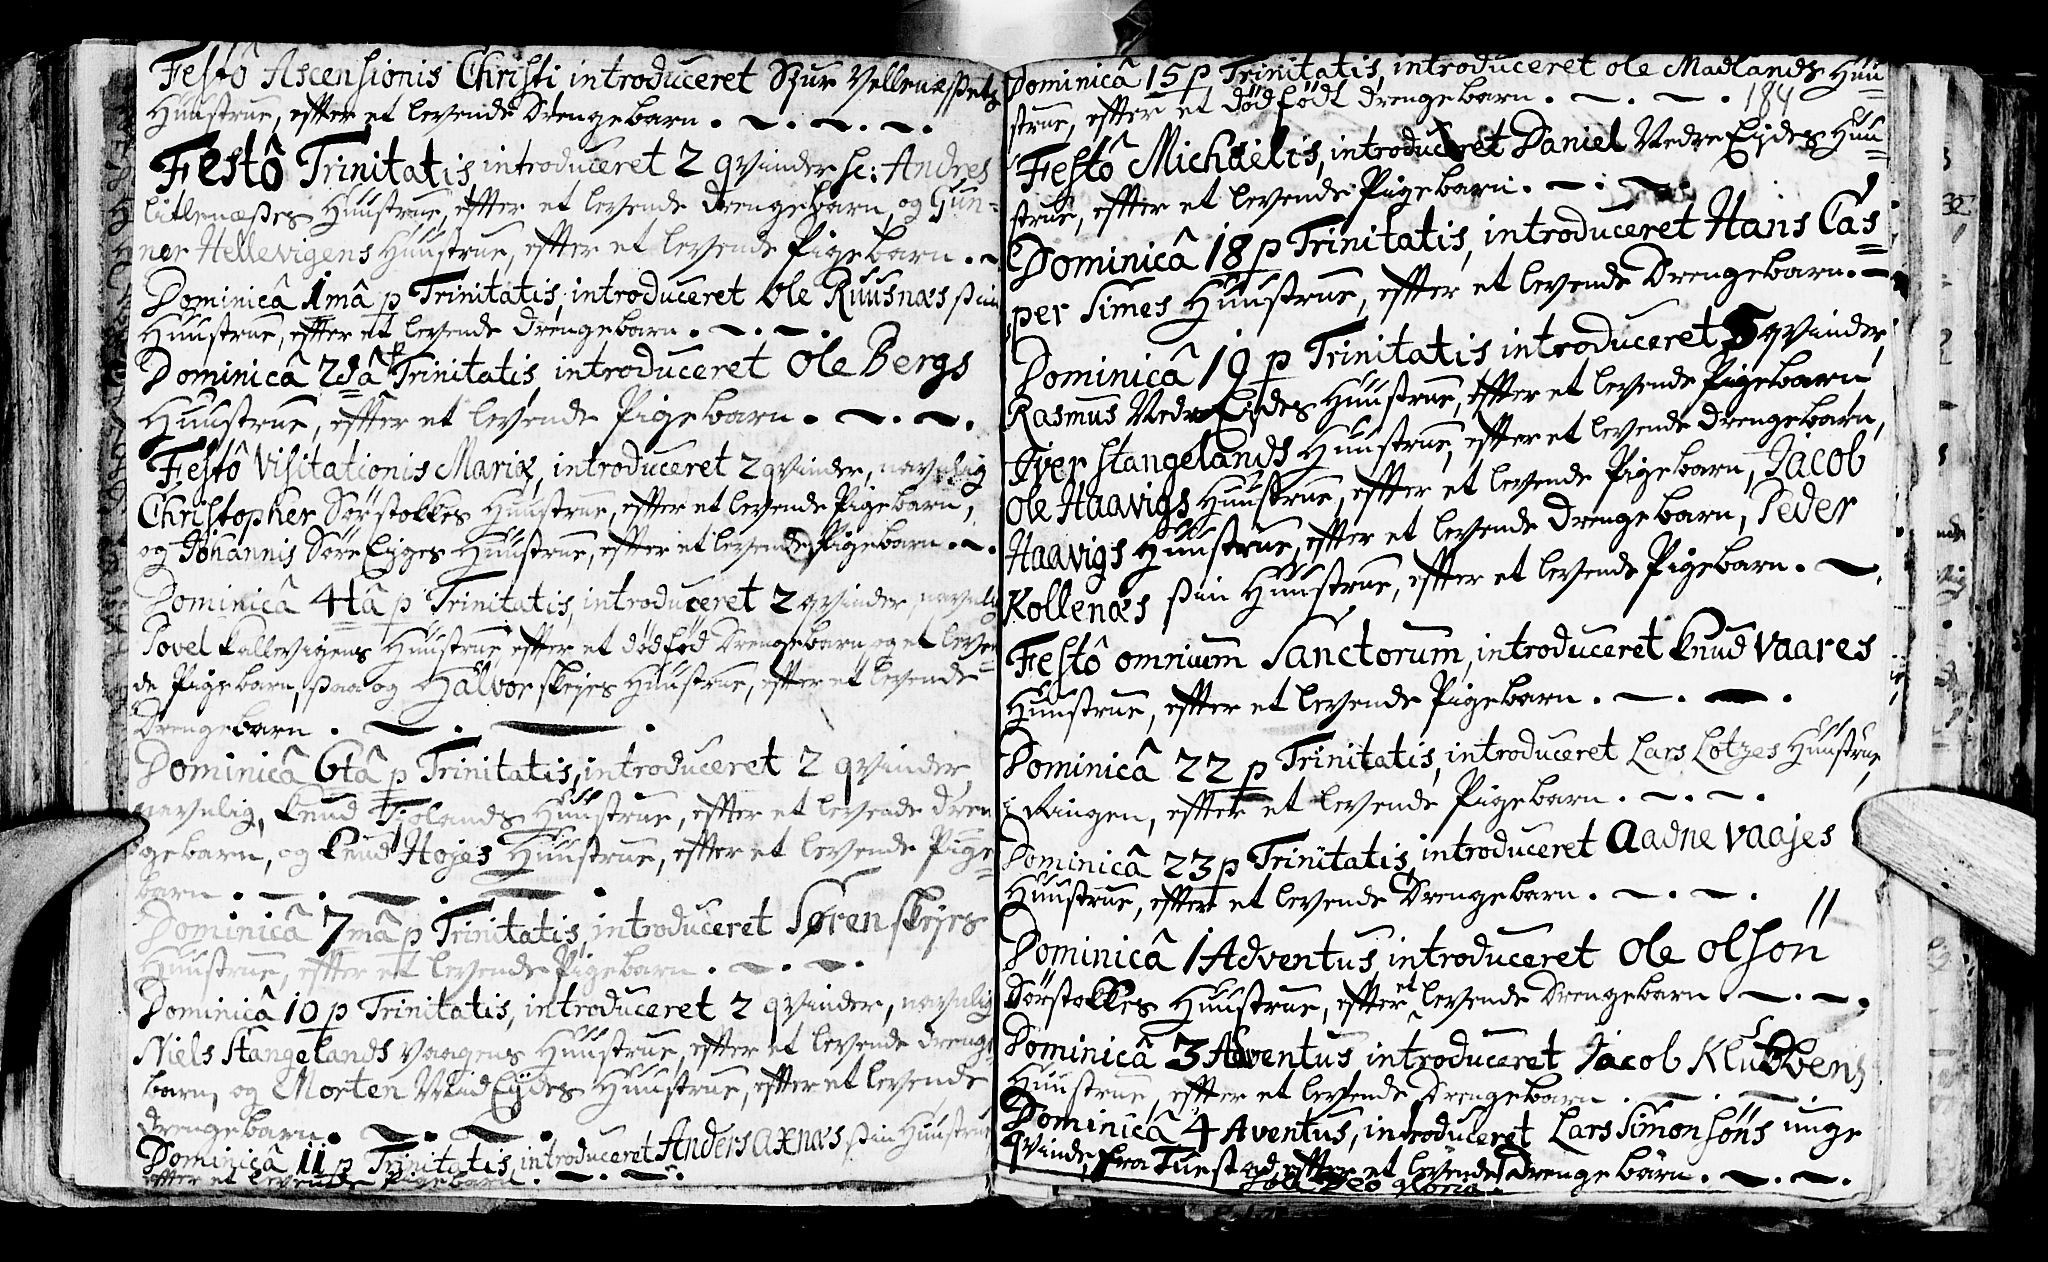 Festô Ascensionis Christi introduceret Siur Vellenæssets
Huustrue, effter et levende Drengebarn.
Festô Trinitatis, introduceret 2 qvinder sc: Andres
litlenæsses Huustrue, effter et levende drengebarn, og Gun-
ner Hellevigens Huustrue, effter et levende Pigebarn.
Dominicâ 1mâ p Trinitatis, introduceret Ole Ruusnæs sin
Huustrue, effter et levende drengebarn.
Dominicâ 2dâ p Trinitatis, introduceret Ole Bergs
Huustrue, effter et levende Pigebarn.
Festô Visitationis Mariæ, introduceret 2 qvinder, navnlig
Christopher Sørstokkes Huustrue, effter et levende Pigebarn,
og Johannis Søre Eiges Huustrue, effter et levende Pigebarn.
Dominicâ 4tâ p Trinitatis, introduceret 2 qvinder, navnlig
Povel Kallevigens Huustrue effter et dødfød Drengebarn og et leven-
de Pigebarn, saa og Halvor Skejes Huustrue, effter et levende
Drengebarn.
Dominicâ 6tâ p Trinitatis, introduceret 2 qvinder
navnlig, Knud Fiolands Huustrue, effter et levende dren-
gebarn, og Knud Hojes Huustrue, effter et levende Pige-
barn.
Dominicâ 7mâ p Trinitatis, introduceret Søren Skejes
Huustrue, effter et levende Pigebarn.
Dominicâ 10 p Trinitatis, introduceret 2 qvinder, navnlig
Niels Stangelands Vaagens Huustrue, effter et levende drenge-
barn, og Morten Mid Eydes Huustrue, effter et levende
drengebarn.
Dominicâ 11 p Trinitatis, introduceret Anders axnæs sin Huustrue
effter et levende Pigebarn.
Dominicâ 15 p Trinitatis, introduceret ole Madlands Huu=
strue, effter et dødfødt drengebarn. 184
Festô Michaëlis, introduceret Daniel Nedre Eydes Huu=
strue, effter et levende Pigebarn.
Dominicâ 18 p Trinitatis, introduceret Hans Cas=
per Simes Huustrue, effter et levende Drengebarn.
Dominicâ 19 p Trinitatis introduceret 5 qvinder,
Rasmus Nedre Eydes Huustrue, effter et levende Pigebarn
Iver Stangelands Huustrue, effter et levende drengebarn,
Ole Haavigs Huustrue, effter et levende Pigebarn, Jacob
Haavigs Huustrue, effter et levende drengebarn, Peder
Kollenæs sin Huustrue, effter et levende Pigebarn.
Festô omnium Sanctorum, introduceret Knud Vaares
Huustrue, effter et levende Pigebarn.
Dominicâ 22 p Trinitatis, introduceret Lars Lotzes Huustrue,
i effter et levende Pigebarn.
Dominicâ 23 p Trinitatis, introduceret Aadne Vaajes
Huustrue, effter et levende Drengebarn.
Dominicâ 1 Adventus, introduceret Ole Olson
Sørstokkes Huustrue, effter et levende Drengebarn.
Dominicâ 3 Adventus introduceret Jacob Klubbens
Huustrue, effter et levende Drengebarn.
Dominicâ 4 Aventus, introduceret Lars Simonsøns unge
qvinde, fra Tuestad, effter et levende Drengebarn.
Soli Deo gloria.